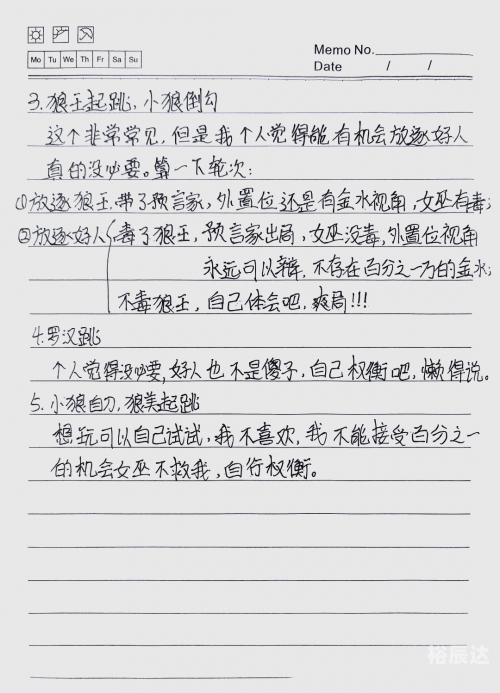 Mo Tu We Th Fr Sa Su
Memo No.
Date / /
3.狼王起跳,小狼倒勾
这个非常常见,但是我个人觉得能有机会放逐好人
真的没必要。算一下轮次:
①放逐狼王,带了预言家,外置位还是有金水视角,女巫有毒;
②放逐好人 毒了狼王,预言家出局,女巫没毒,外置位视角
永远可以辩,不存在百分之一万的金水;
不毒狼王,自己体会吧,爽局!!!
4.罗汉跳
个人觉得没必要,好人也不是傻子,自己权衡吧,懒得说。
5.小狼自刀,狼美起跳
想玩可以自己试试,我不喜欢,我不能接受百分之一
的机会女巫不救我,自行权衡。
裕辰达